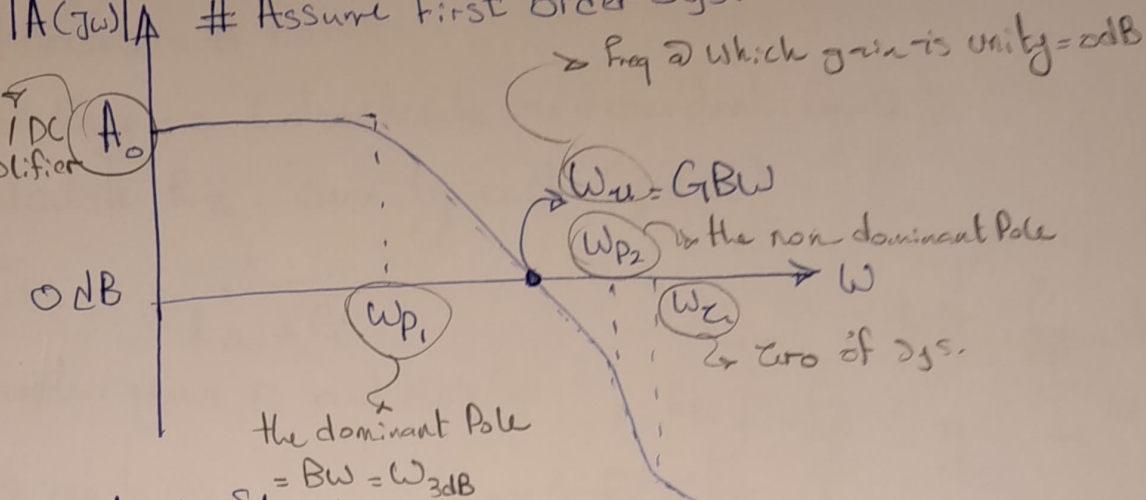 |A(jω)| # Assume First Order Sys.
→ Freq @ which gain is unity = 0dB
DC A₀
ωu = GBW
ωp₂ → the non dominant Pole
0 dB ω
ωp₁ ωz
→ zero of sys.
the dominant Pole
= BW = ω3dB